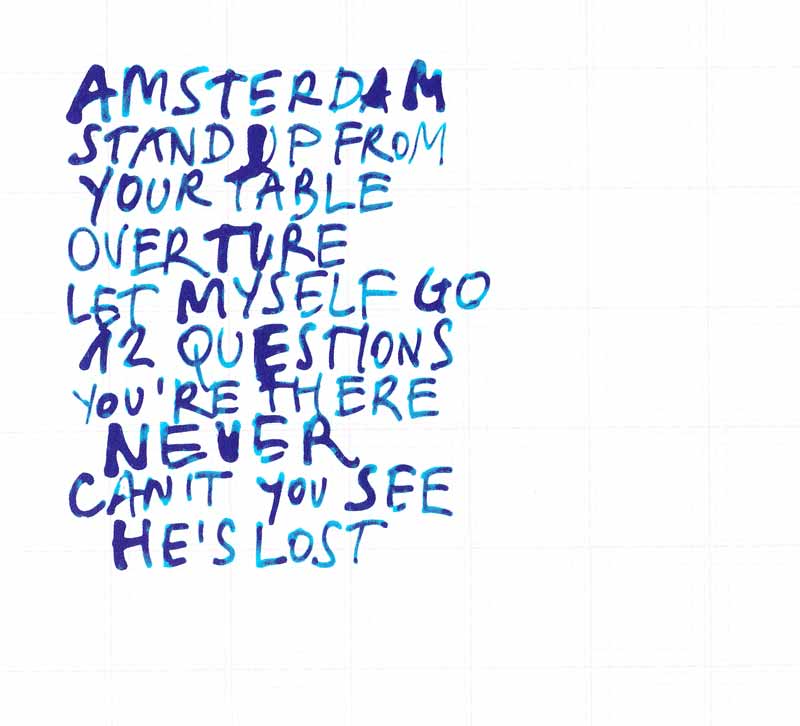 AMSTERDAM
STAND UP FROM
YOUR TABLE
OVERTURE
LET MYSELF GO
12 QUESTIONS
YOU'RE THERE
NEVER
CAN'T YOU SEE
HE'S LOST